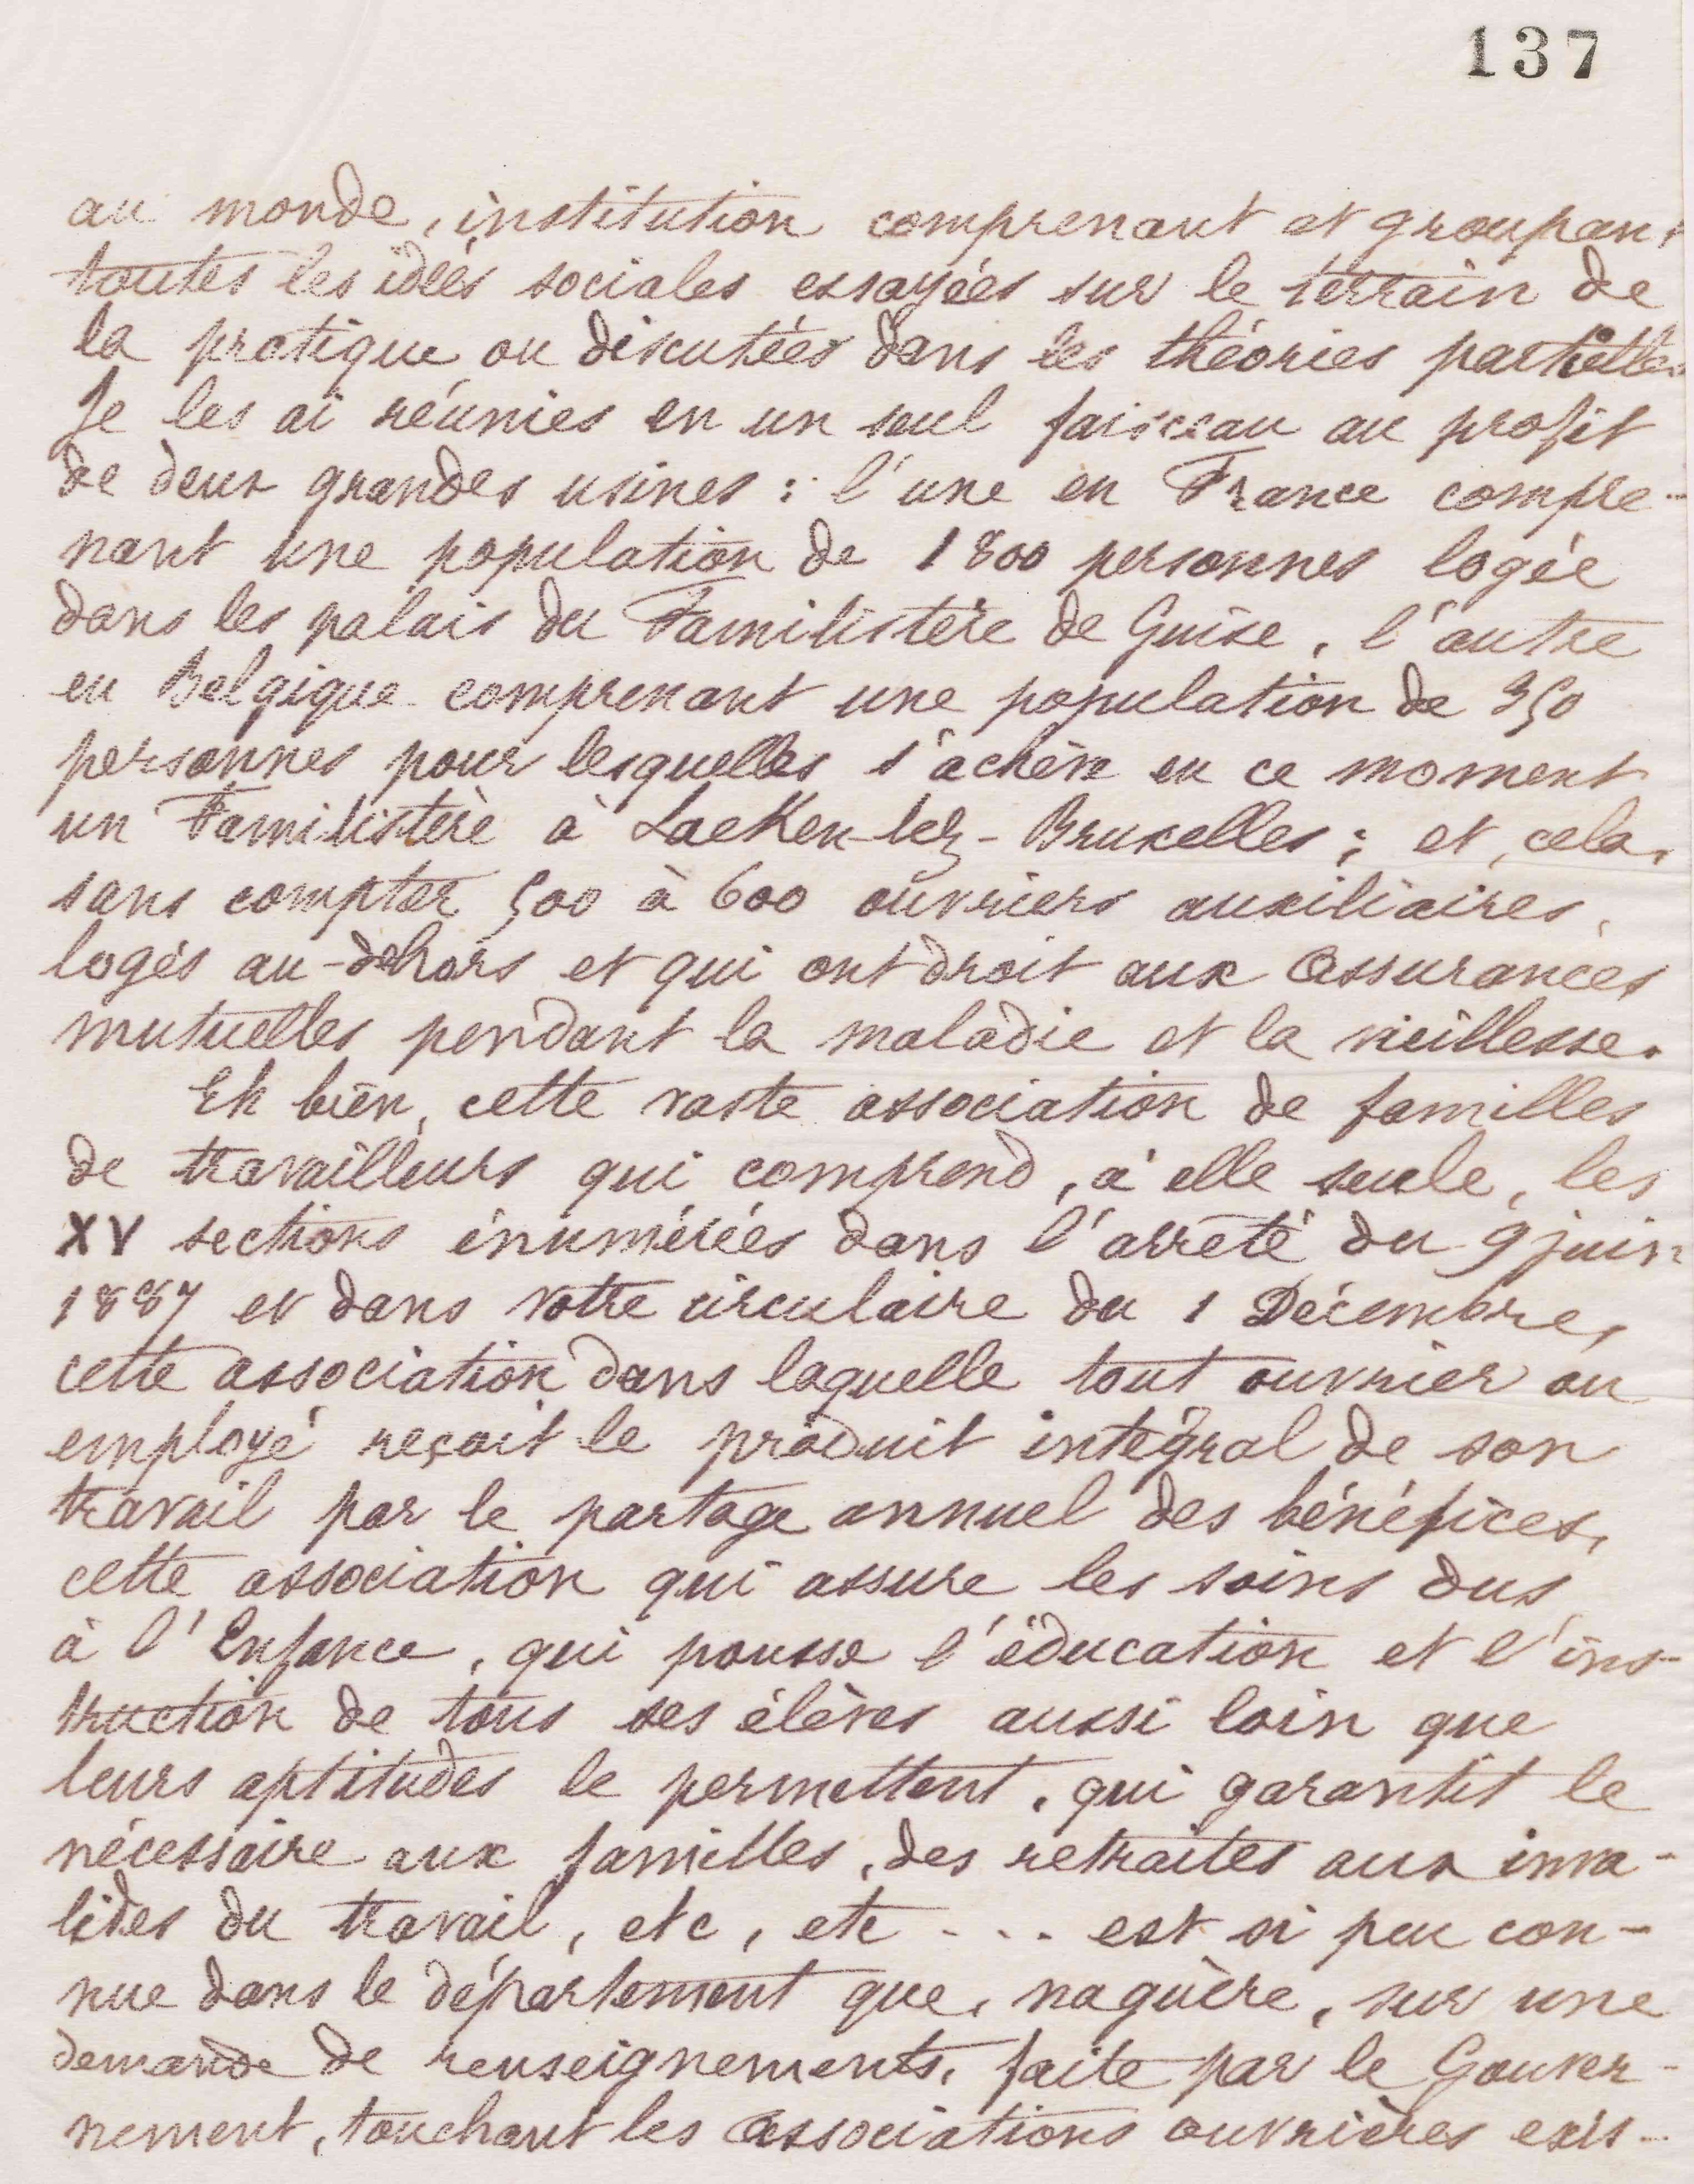 137
au monde, institution comprenant et groupant
toutes les idées sociales essayées sur le terrain de
la pratique ou discutées dans les théories partielles
Je les ai réunies en un seul faisceau au profit
de deux grandes usines : l'une en France compre-
nant une population de 1800 personnes logée
dans les palais du Familistère de Guise, l'autre
en Belgique comprenant une population de 350
personnes pour lesquelles s'achève en ce moment
un Familistère à Laeken-lez-Bruxelles ; et, cela,
sans compter 500 à 600 ouvriers auxiliaires,
logés au-dehors et qui ont droit aux Assurances
mutuelles pendant la maladie et la vieillesse.
Eh bien, cette vaste association de familles
de travailleurs qui comprend, à elle seule, les
XV sections énumérées dans l'arrêté du 9 juin
1887 et dans votre circulaire du 1 Décembre,
cette association dans laquelle tout ouvrier ou
employé reçoit le produit intégral de son
travail par le partage annuel des bénéfices,
cette association qui assure les soins dus
à l'Enfance, qui pousse l'éducation et l'ins-
truction de tous ses élèves aussi loin que
leurs aptitudes le permettent, qui garantit le
nécessaire aux familles, des retraites aux inva-
lides du travail, etc, etc ... est si peu con-
nue dans le département que, naguère, sur une
demande de renseignements, faite par le Gouver-
nement, touchant les Associations ouvrières exis-